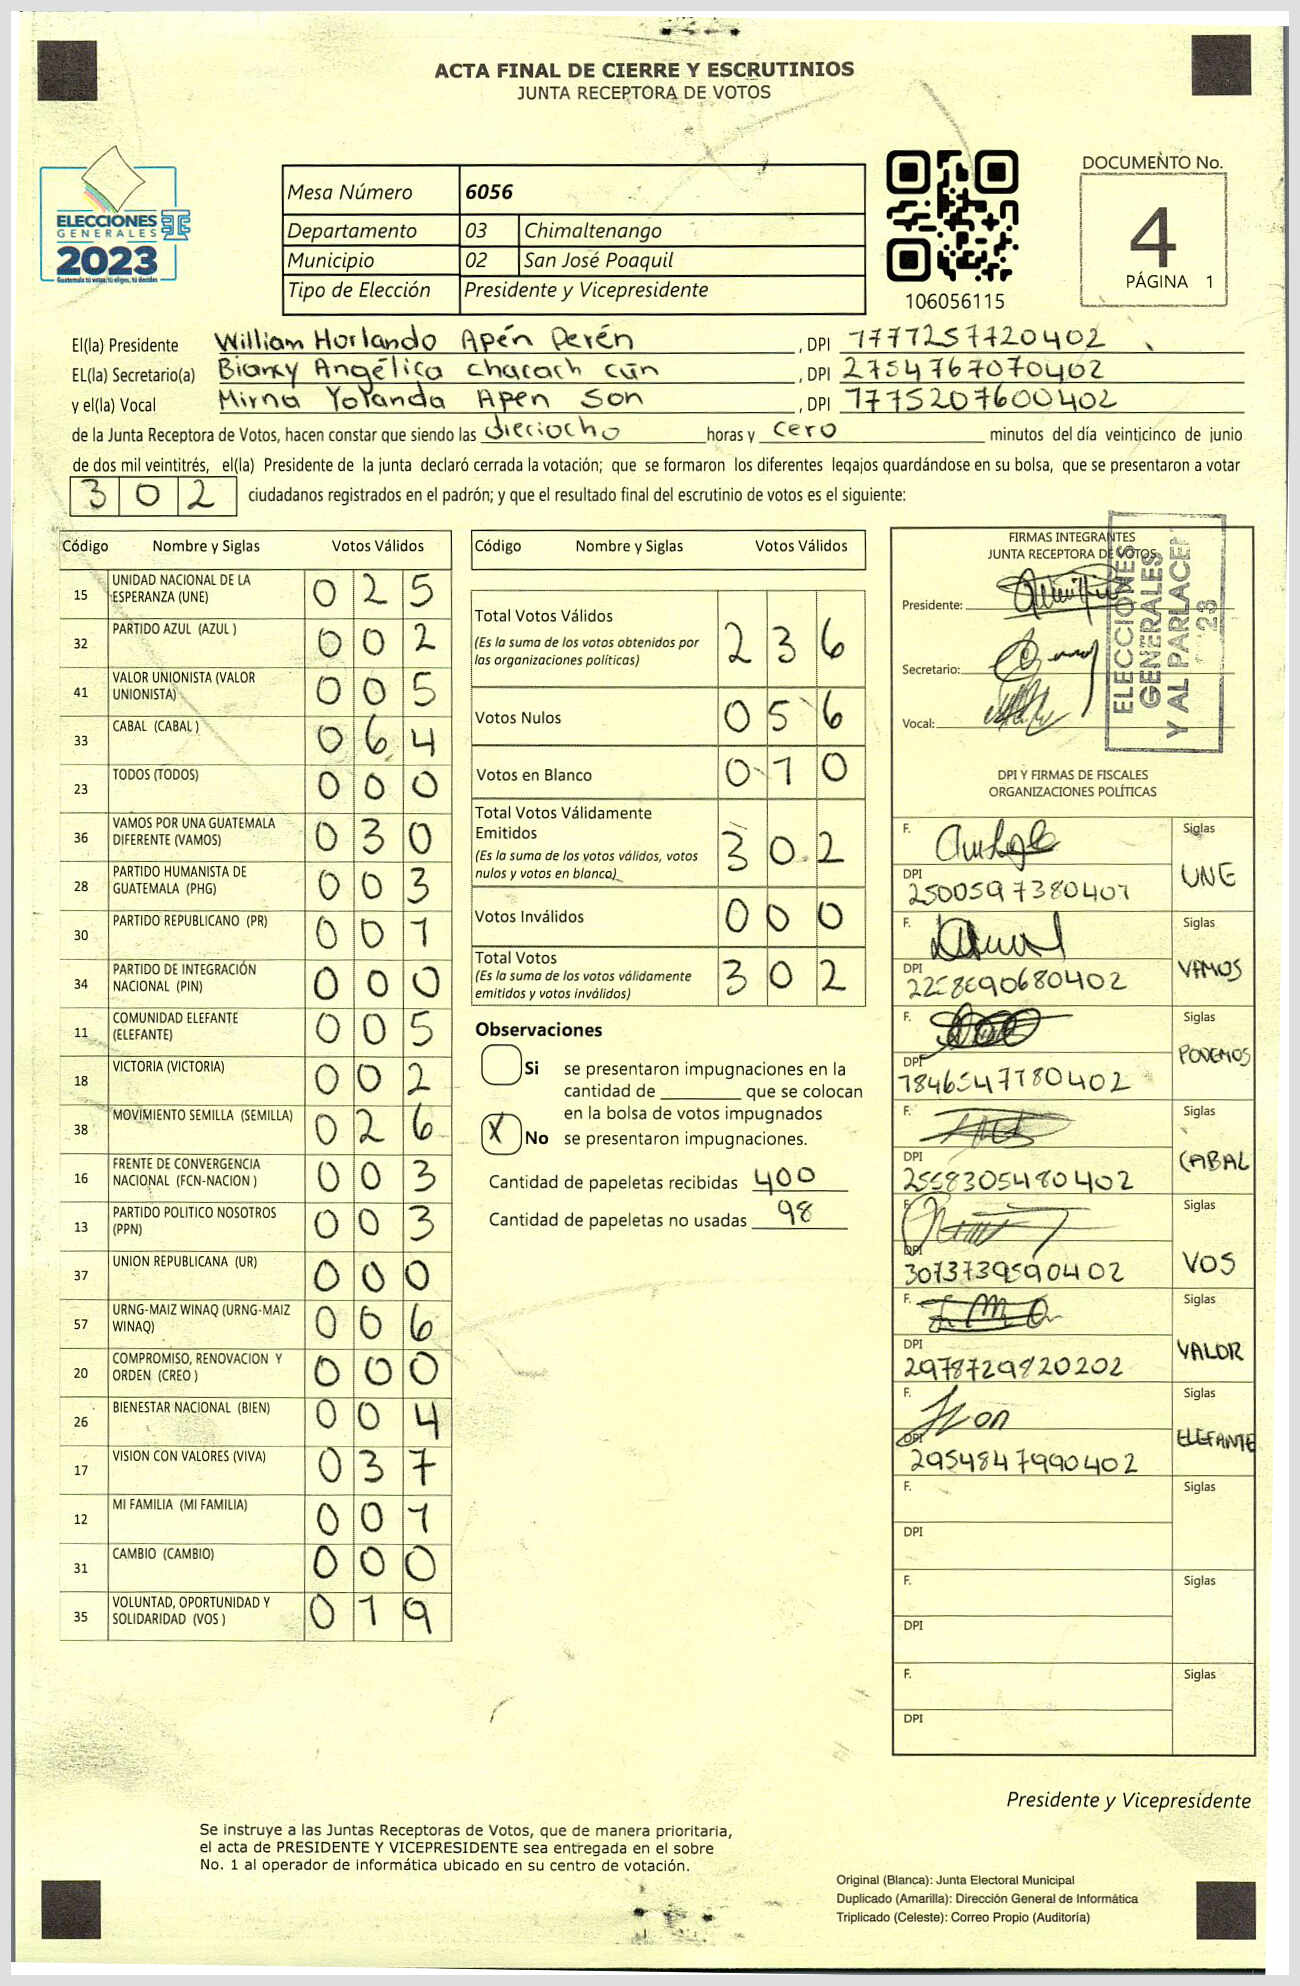 ACTA FINAL DE CIERRE Y ESCRUTINIOS
JUNTA RECEPTORA DE VOTOS
ELECCIONES
GENERALES
2023
Guatemala tú votas, tú eliges, tú decides
Mesa Número 6056
Departamento 03 Chimaltenango
Municipio 02 San José Poaquil
Tipo de Elección Presidente y Vicepresidente
106056115
DOCUMENTO No.
4
PÁGINA 1
El(la) Presidente William Horlando Apén Perén , DPI 1777257720402
EL(la) Secretario(a) Bianxy Angélica chacach cún , DPI 2754767070402
y el(la) Vocal Mirna Yolanda Apen Son , DPI 1775207600402
de la Junta Receptora de Votos, hacen constar que siendo las dieciocho horas y cero minutos del día veinticinco de junio
de dos mil veintitrés, el(la) Presidente de la junta declaró cerrada la votación; que se formaron los diferentes legajos guardándose en su bolsa, que se presentaron a votar
302 ciudadanos registrados en el padrón; y que el resultado final del escrutinio de votos es el siguiente:
Código Nombre y Siglas Votos Válidos
15 UNIDAD NACIONAL DE LA ESPERANZA (UNE) 025
32 PARTIDO AZUL (AZUL ) 002
41 VALOR UNIONISTA (VALOR UNIONISTA) 005
33 CABAL (CABAL ) 064
23 TODOS (TODOS) 000
36 VAMOS POR UNA GUATEMALA DIFERENTE (VAMOS) 030
28 PARTIDO HUMANISTA DE GUATEMALA (PHG) 003
30 PARTIDO REPUBLICANO (PR) 001
34 PARTIDO DE INTEGRACIÓN NACIONAL (PIN) 000
11 COMUNIDAD ELEFANTE (ELEFANTE) 005
18 VICTORIA (VICTORIA) 002
38 MOVIMIENTO SEMILLA (SEMILLA) 026
16 FRENTE DE CONVERGENCIA NACIONAL (FCN-NACION ) 003
13 PARTIDO POLITICO NOSOTROS (PPN) 003
37 UNION REPUBLICANA (UR) 000
57 URNG-MAIZ WINAQ (URNG-MAIZ WINAQ) 006
20 COMPROMISO, RENOVACION Y ORDEN (CREO ) 000
26 BIENESTAR NACIONAL (BIEN) 004
17 VISION CON VALORES (VIVA) 037
12 MI FAMILIA (MI FAMILIA) 001
31 CAMBIO (CAMBIO) 000
35 VOLUNTAD, OPORTUNIDAD Y SOLIDARIDAD (VOS ) 019
Código Nombre y Siglas Votos Válidos
Total Votos Válidos 236
(Es la suma de los votos obtenidos por
las organizaciones políticas)
Votos Nulos 056
Votos en Blanco 010
Total Votos Válidamente
Emitidos 302
(Es la suma de los votos válidos, votos
nulos y votos en blanco)
Votos Inválidos 000
Total Votos 302
(Es la suma de los votos válidamente
emitidos y votos inválidos)
Observaciones
Si se presentaron impugnaciones en la
cantidad de ________ que se colocan
en la bolsa de votos impugnados
X No se presentaron impugnaciones.
Cantidad de papeletas recibidas 400
Cantidad de papeletas no usadas 98
FIRMAS INTEGRANTES
JUNTA RECEPTORA DE VOTOS
Presidente:
Secretario:
Vocal:
ELECCIONES
GENERALES
Y AL PARLACEN
23
DPI Y FIRMAS DE FISCALES
ORGANIZACIONES POLÍTICAS
F. Siglas
DPI 2500597380401 UNE
F. Siglas
DPI VAMOS
F. Siglas
DPI 1846547780402 PODEMOS
F. Siglas
DPI 2558305480402 CABAL
F. Siglas
DPI 3073739590402 VOS
F. Siglas
DPI 2978729820202 VALOR
F. Siglas
DPI 2954847990402 ELEFANTE
F. Siglas
DPI
F. Siglas
DPI
F. Siglas
DPI
Presidente y Vicepresidente
Se instruye a las Juntas Receptoras de Votos, que de manera prioritaria,
el acta de PRESIDENTE Y VICEPRESIDENTE sea entregada en el sobre
No. 1 al operador de informática ubicado en su centro de votación.
Original (Blanca): Junta Electoral Municipal
Duplicado (Amarilla): Dirección General de Informática
Triplicado (Celeste): Correo Propio (Auditoría)